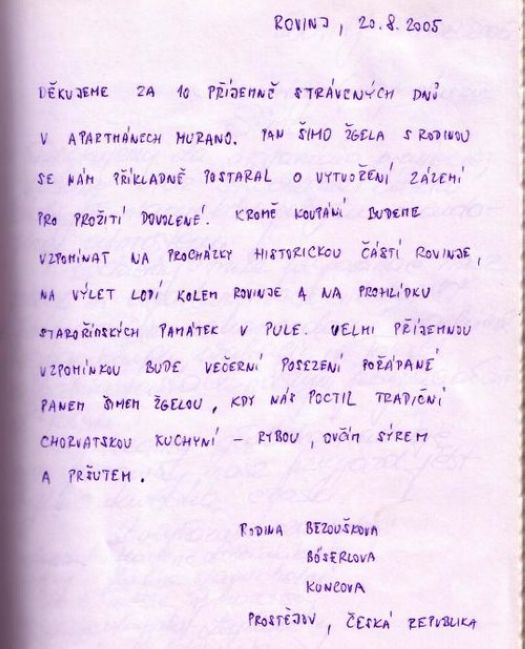 ROVINJ, 20.8.2005
DĚKUJEME ZA 10 PŘÍJEMNĚ STRÁVENÝCH DNŮ
V APARTMÁNECH MURANO. PAN ŠIMO ŽGELA S RODINOU
SE NÁM PŘÍKLADNĚ POSTARAL O VYTVOŘENÍ ZÁZEMÍ
PRO PROŽITÍ DOVOLENÉ. KROMĚ KOUPÁNÍ BUDEME
VZPOMÍNAT NA PROCHÁZKY HISTORICKOU ČÁSTÍ ROVINJE,
NA VÝLET LODÍ KOLEM ROVINJE A NA PROHLÍDKU
STAROŘÍMSKÝCH PAMÁTEK V PULE. VELMI PŘÍJEMNOU
VZPOMÍNKOU BUDE VEČERNÍ POSEZENÍ POŘÁDANÉ
PANEM ŠIMEM ŽGELOU, KDY NÁS POCTIL TRADIČNÍ
CHORVATSKOU KUCHYNÍ – RYBOU, OVČÍM SÝREM
A PRŠUTEM.
RODINA BEZOUŠKOVA
BÖSERLOVA
KUNCOVA
PROSTĚJOV, ČESKÁ REPUBLIKA